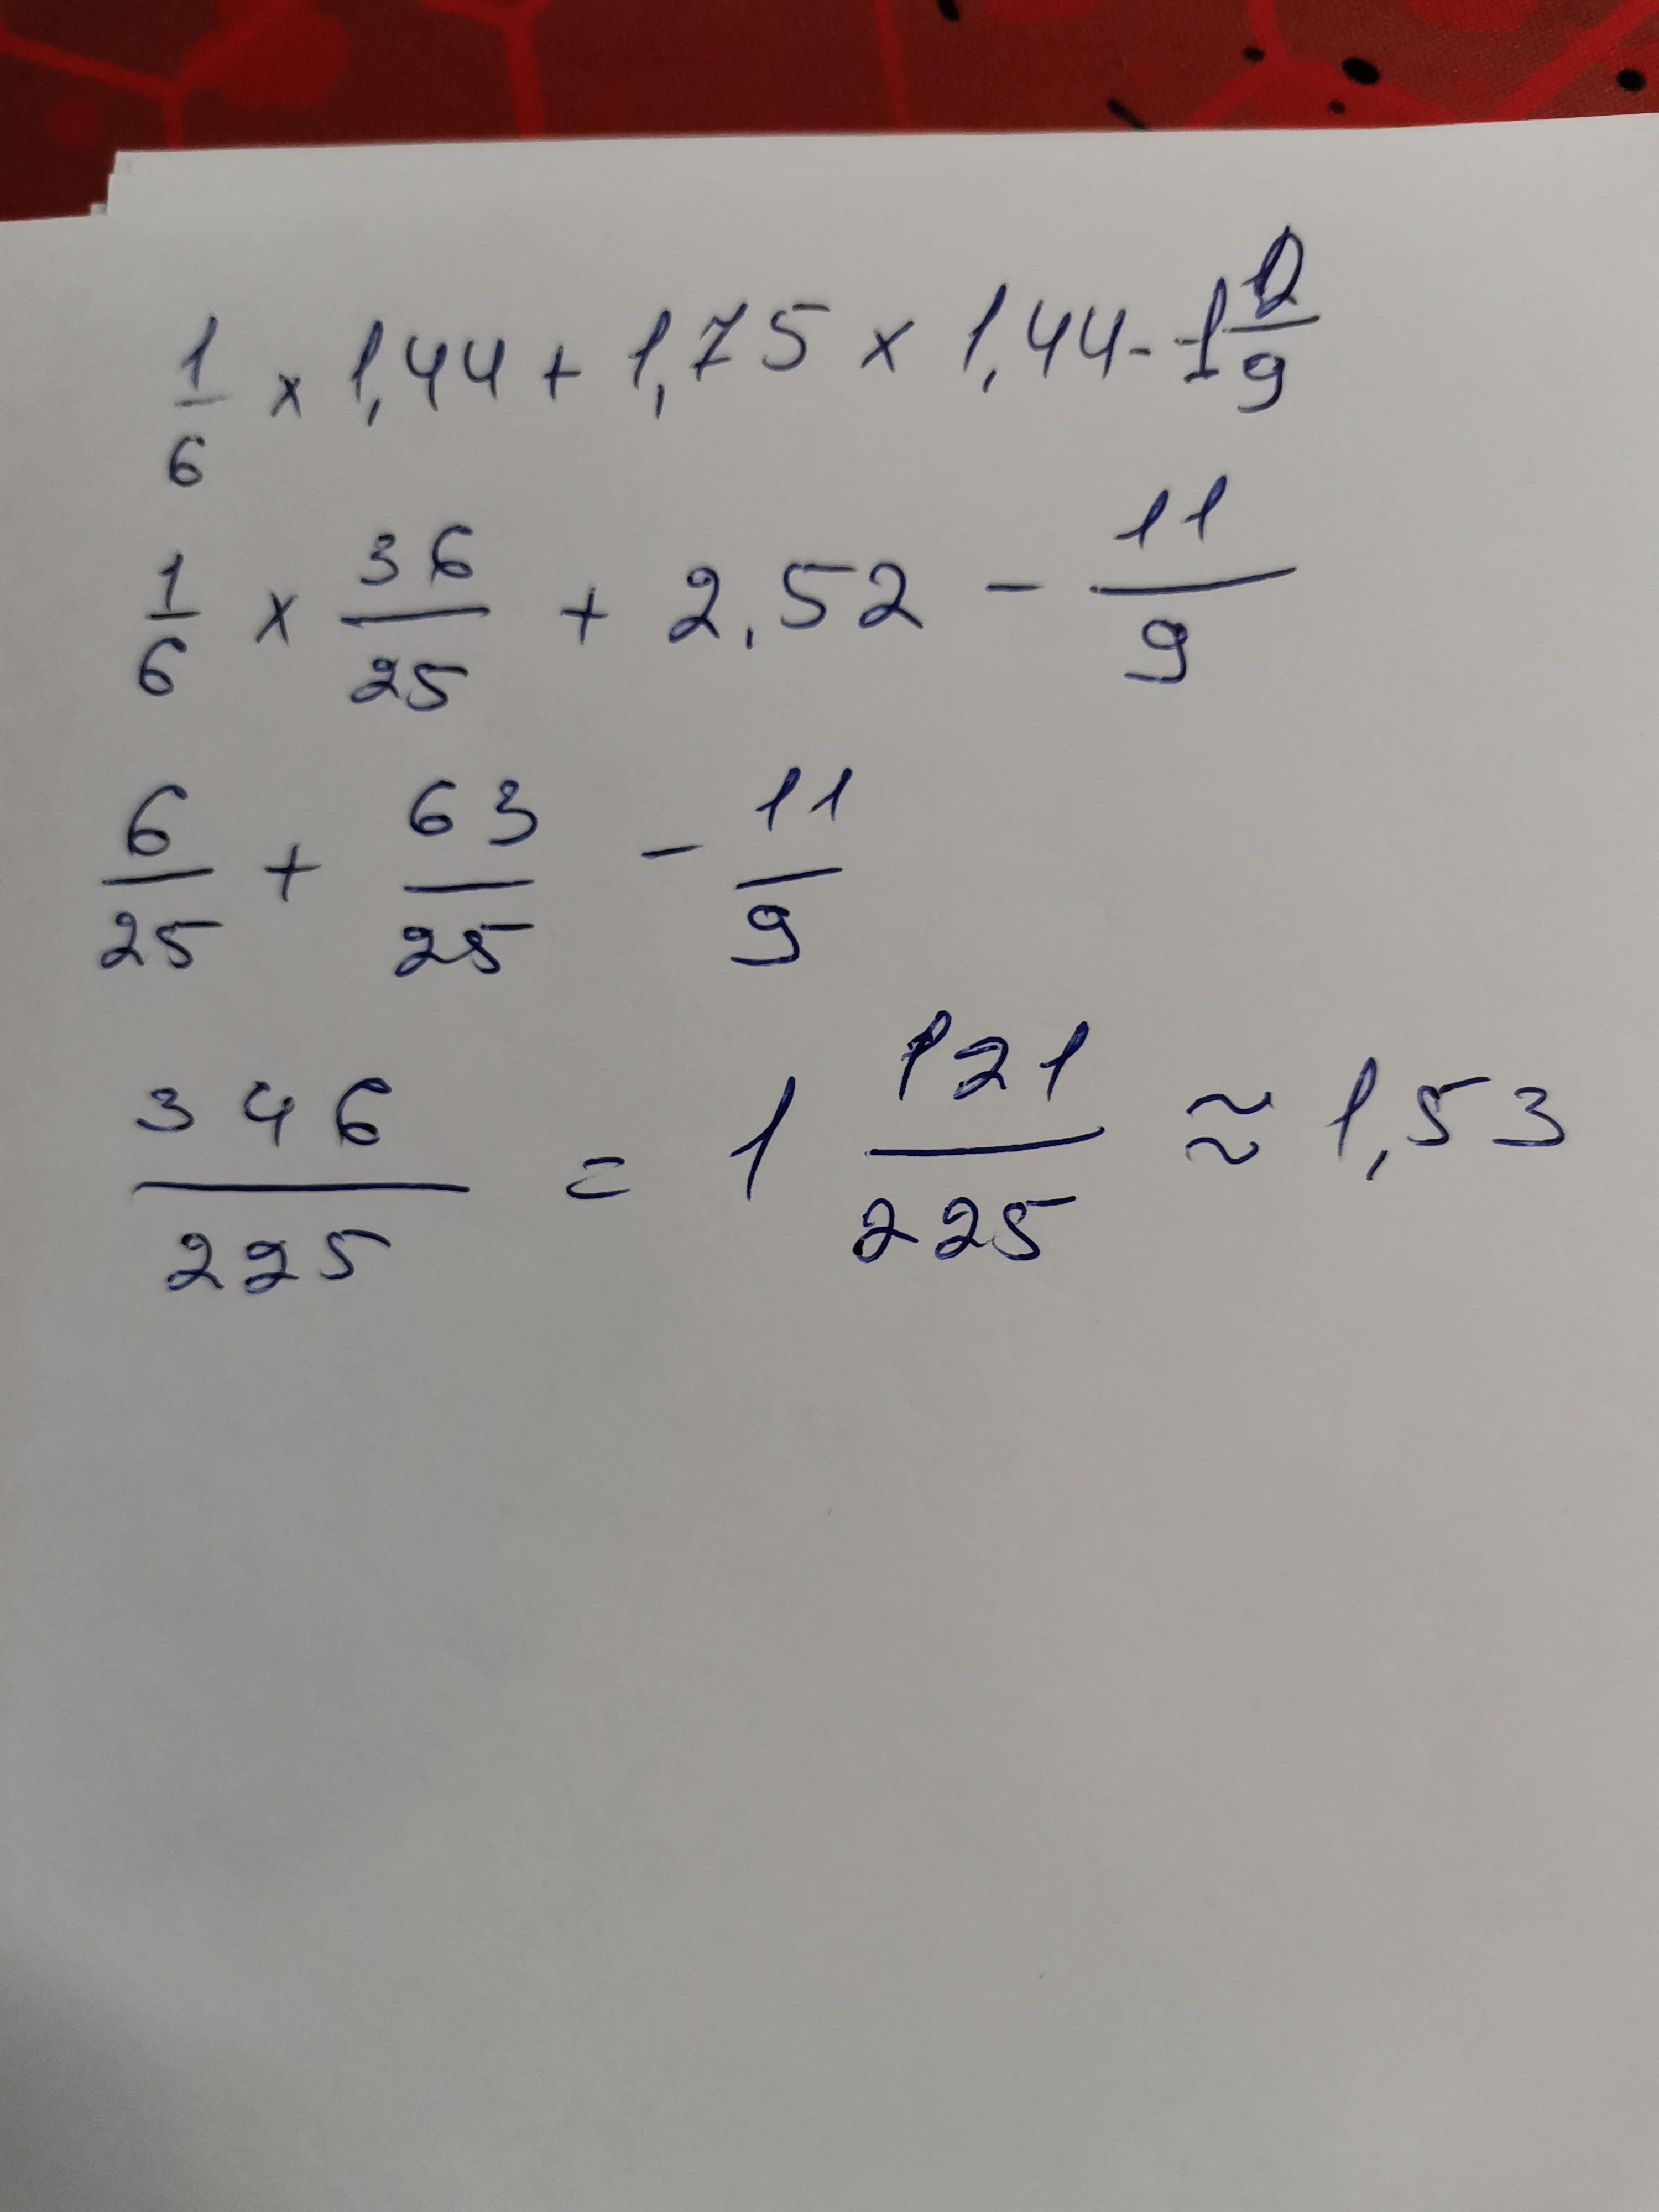 1/6 × 1,44 + 1,75 × 1,44 - 1 2/9
1/6 × 36/25 + 2,52 - 11/9
6/25 + 63/25 - 11/9
346/225 = 1 121/225 ≈ 1,53